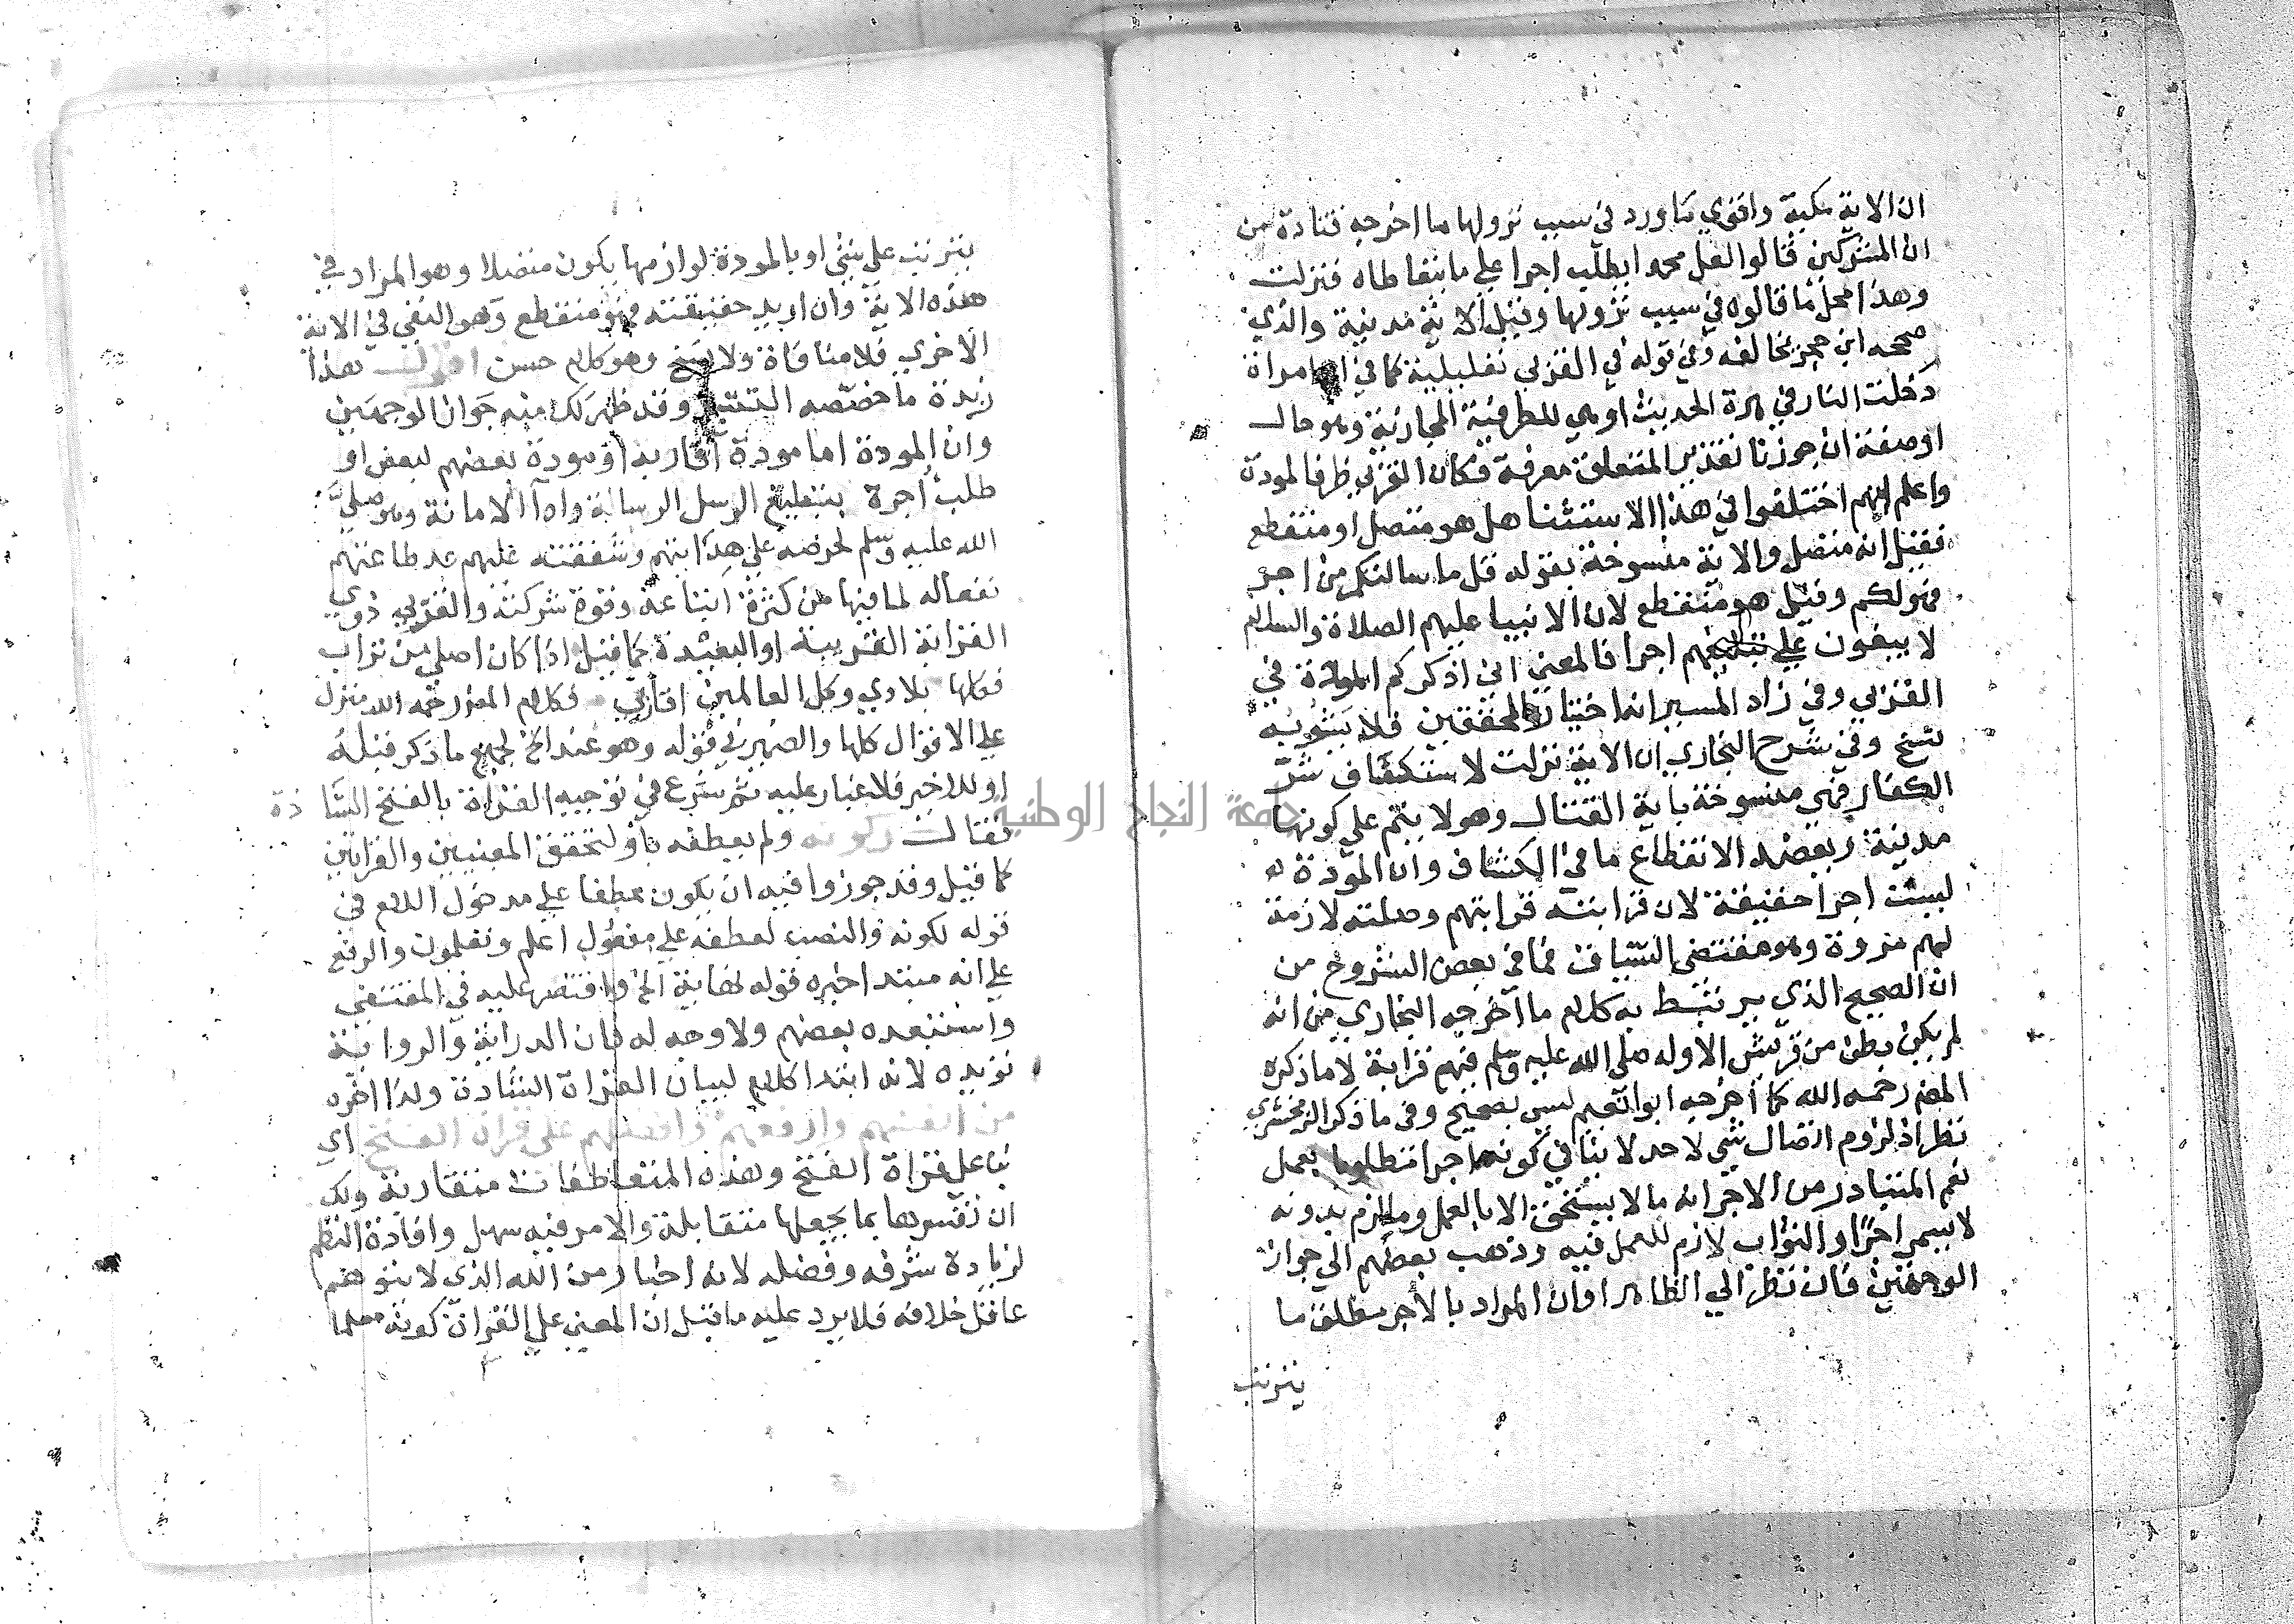 ان الاية مكية واقوي ما ورد في سبب نزولها ما اخرجه قتادة من
ان المشركين قالوا لعل محمدا يطلب اجرا علي ما يتعاطاه فنزلت
وهذا محل ما قالوه في سبب نزولها وقيل الاية مدنية والذي
صححه ابن حجر يخالفه وفي قوله في القربي تعليلية كما في ان امراة
دخلت النار في هرة الحديث او هي للظرفية المجازية وهو حال
او صفة ان جوزنا تقدير المتعلق معرفة فكان القربي ظرفا لمودة
واعلم انهم اختلفوا في هذا الاستثنا هل هو متصل او منقطع
فقيل انه متصل والاية منسوخة بقوله قل ما سالتكم من اجر
فهو لكم وقيل هو منقطع لان الانبيا عليهم الصلاة والسلام
لا يبغون علي تبليغهم اجرا فالمعني اني اذكركم المودة في
القربي وفي زاد المسير انه اختيار المحققين فلا يتوجه
نسخ وفي شرح البخاري ان الاية نزلت لاستكفاف شر
الكفار فهي منسوخة باية القتال وهو لا يتم علي كونها
مدنية ويعضد الانقطاع ما في الكشاف وان المودة له
ليست اجرا حقيقة لان قرابته قرابتهم وصلته لازمة
لهم مروة وهو مقتضي السياق فما في بعض الشروح من
ان الصحيح الذي يرتبط به كلام ما اخرجه البخاري من انه
لم يكن بطن من قريش الا وله صلي الله عليه وسلم فيهم قرابة لا ما ذكره
المص رحمه الله كما اخرجه ابو انعيم ليس بصحيح وفي ما ذكر الزمخشري
نظر اذ لزوم اتصال شي لاحد لا ينافي كونها اجرا متطلوبا بعمل
نعم المتبادر من الاجر انه ما لا يستحق الا بالعمل وما لزم بدونه
لا يسمي اجرا والثواب لازم للعمل فيه وذهب بعضهم الي جواز
الوجهين فان نظر الي الظاهر او ان المراد بالاجر مطلق ما
يترتب
يترتب علي شي او بالمودة لوازمها يكون متصلا وهو المراد في
هذه الاية وان اريد حقيقته فهو منقطع وهو النفي في الاية
الاخري فلا منافاة ولا نسخ وهو كلام حسن اقول هذا
زبدة ما خصصه التتبع وقد ظهر لك منه جواز الوجهين
وان المودة اما مودة اقاربه او مودة بعضهم لبعض او
طلب اجرة بتبليغ الرسل الرسالة واداء الامانة وهو صلي
الله عليه وسلم لحرصه علي هدايتهم وشفقته عليهم عد طاعتهم
نفعا له لما فيها من كثرة اتباعه وقوة شوكته والقربي ذوي
القرابة القريبة او البعيدة كما قيل اذا كان اصلي من تراب
فكلها بلادي وكل العالمين اقاربي فكلام المص رحمه الله منزل
علي الاقوال كلها والضمير في قوله وهو عند الخ لجميع ما ذكر قبله
او للاخير فلا غبار عليه ثم شرع في توجيه القراة بالفتح الشاذة
فقال وكونه ولم يعطفه باو لتحقق المعنيين والقراتين
كما قيل وقد جوزوا فيه ان يكون عطفا علي مدخول اللام في
قوله لكونه والنصب لعطفه علي مفعول اعلم وتعلمون والرفع
علي انه مبتدا خبره قوله لغاية الخ واقتصر عليه في المقتفي
واستبعده بعضهم ولا وجه له فان الدراية والرواية
تؤيده لانه ابتدا كلام لبيان القراة الشاذة ولذا اخره
من انفسهم وارفعهم وافضلهم علي قراة الفتح اي
بنا علي قراة الفتح وهذه المتعاطفات متقاربة ولك
ان تفسرها بما يجعلها متقابلة والامر فيه سهل وافادة النظم
لزيادة شرفه وفضله لانه اخبار من الله الذي لا يتوهم
عاقل خلافه فلا يرد عليه ما قيل ان المعني علي القراة كونه معلما
جامعة النجاح الوطنية